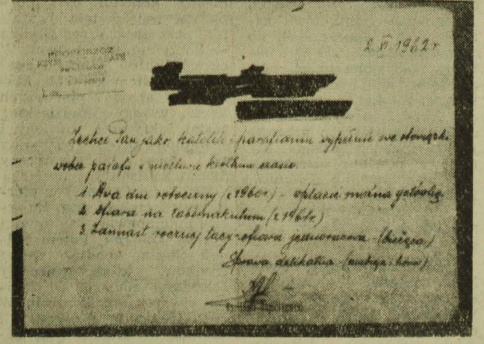 2. VI. 1962 r
Zechce Pan jako katolik i parafianin wypełnić swe obowiązki
wobec parafii w możliwie krótkim czasie.
1. Dwa dni robocizny (z 1960 r.) - opłacić można gotówką.
2. Ofiara na tabernakulum (z 1961 r)
3. Zamiast rocznej tacy ofiara jednorazowa (bieżąca)
Sprawa delikatna